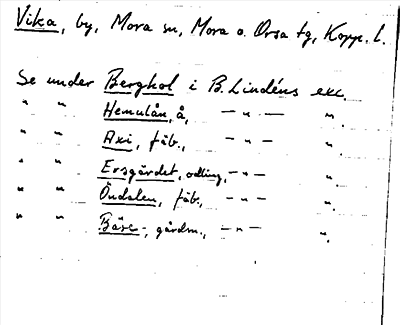 Vika, by, Mora sn, Mora o. Orsa tg, Kopp. l.
Se under Berghol i B. Lindéns exc.
" " Hemulån, å, — " — ".
" " Axi, fäb., — " — ".
" " Ersgärdet, odling, — " — ".
" " Öndalen, fäb., — " — ".
" " Båse-, gårdn., — " — ".